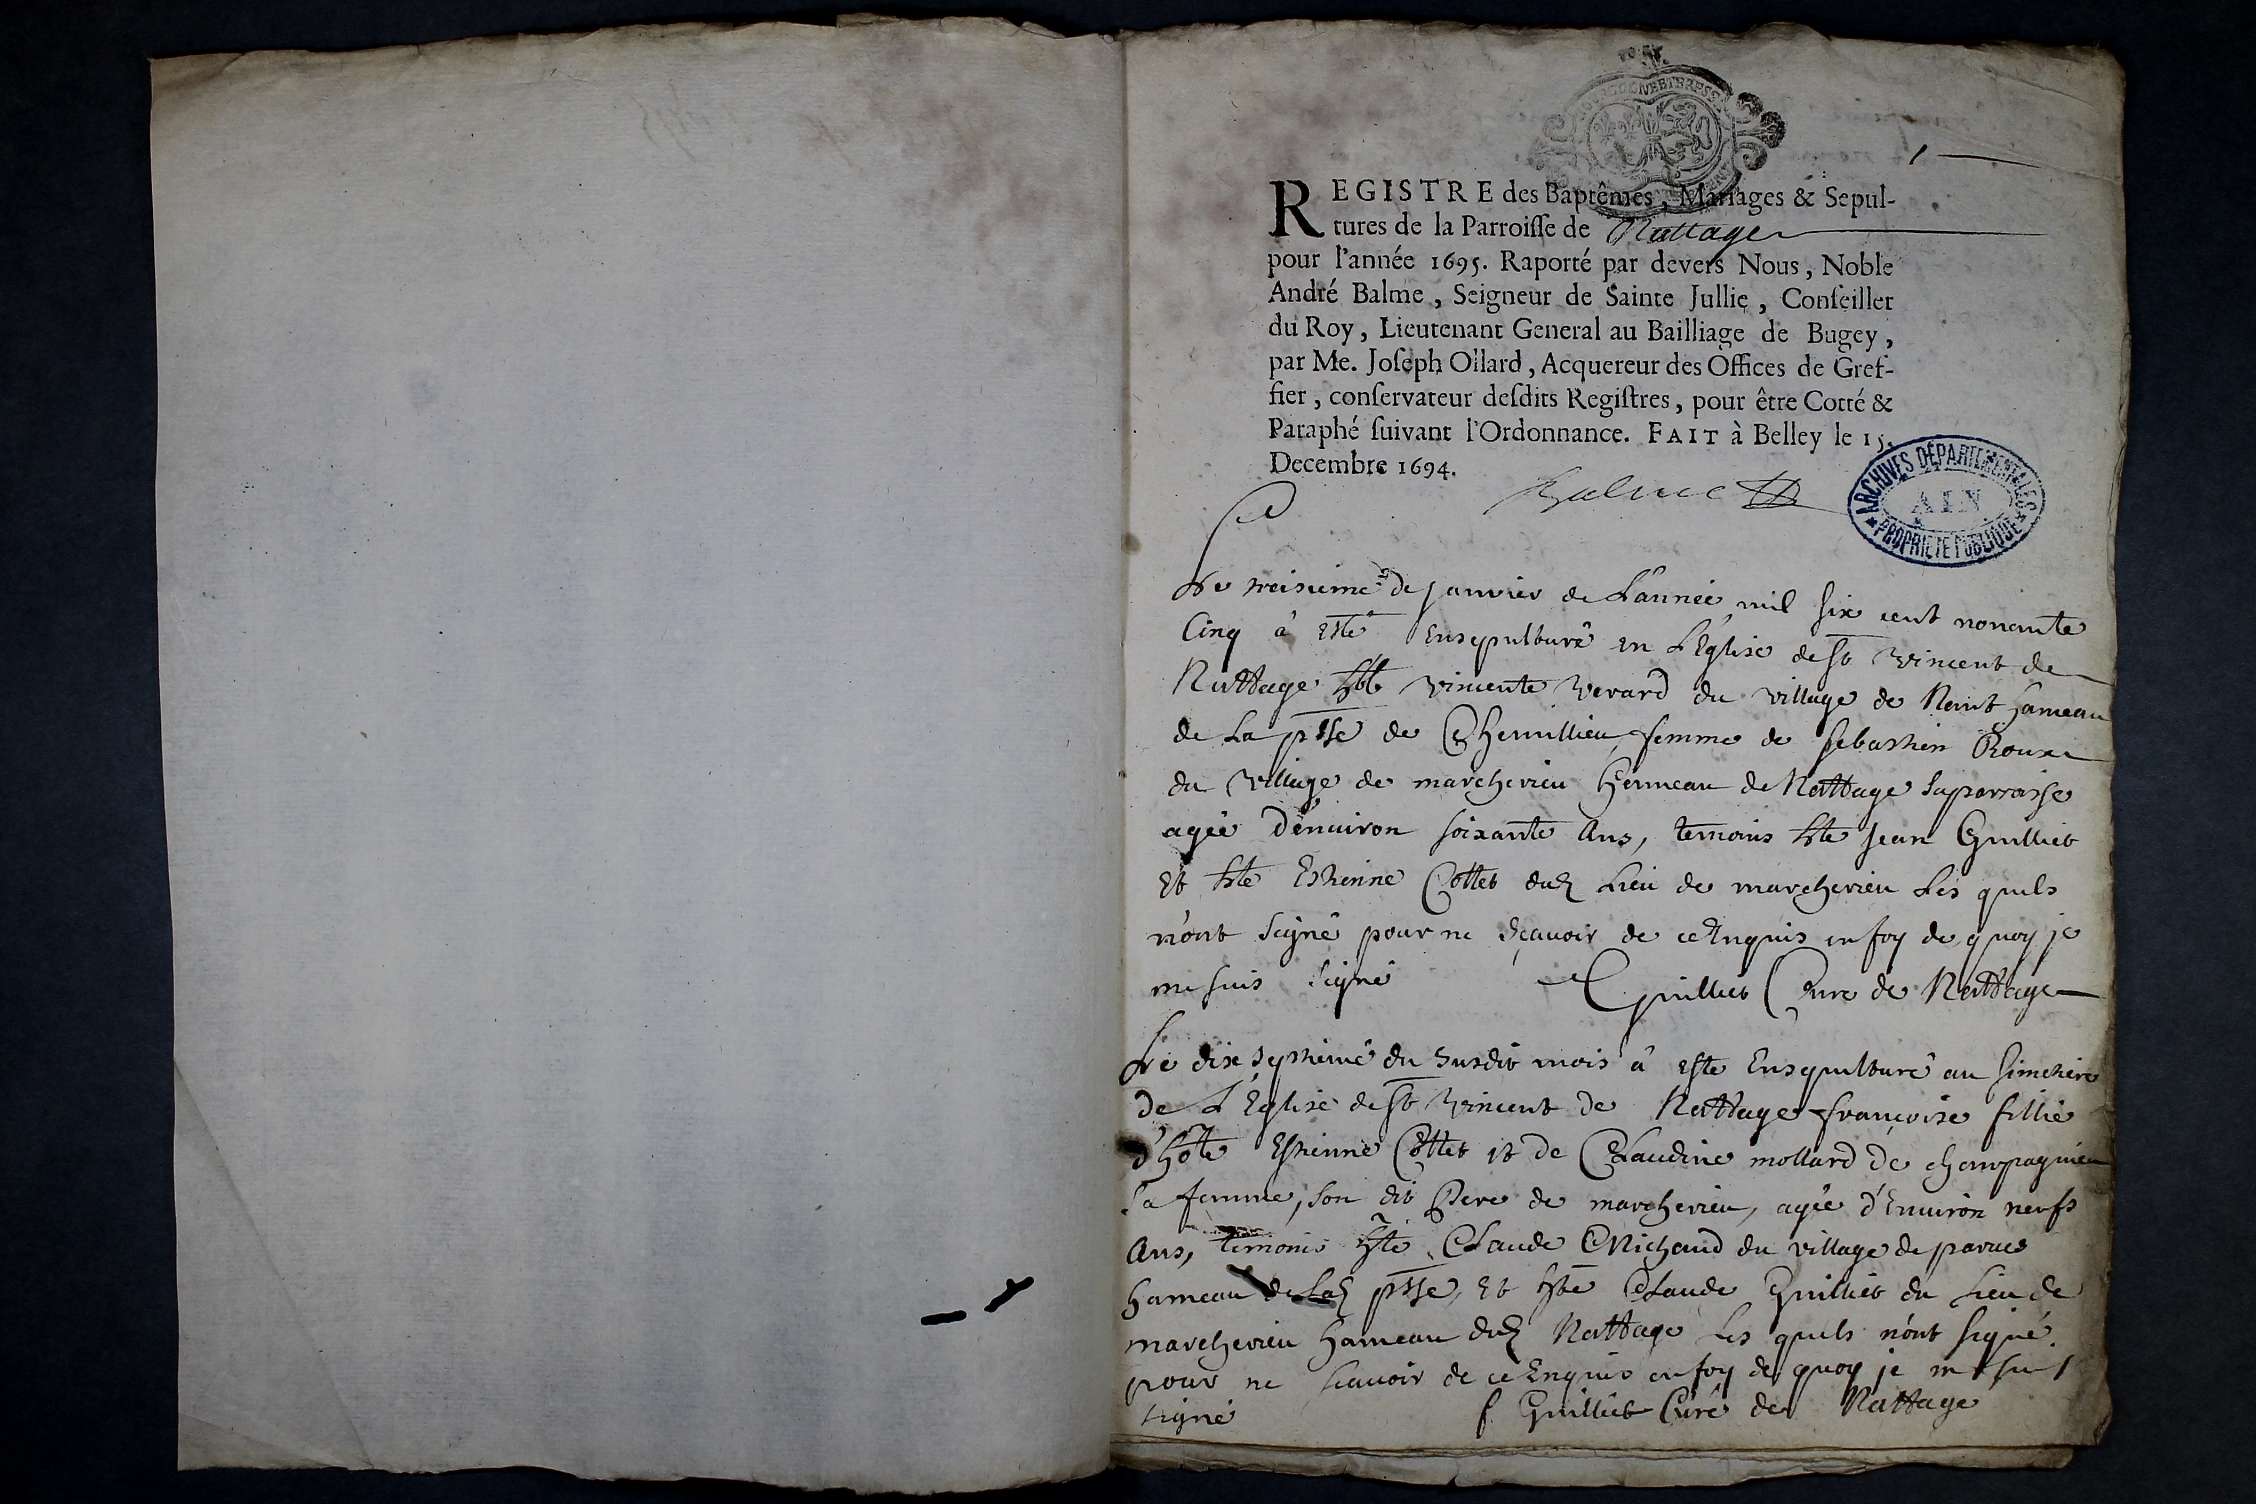 1
REGISTRE des Baptêmes, Mariages & Sepul-
tures de la Parroisse de Nattage
pour l'année 1695. Raporté par devers Nous, Noble
André Balme, Seigneur de Sainte Jullie, Conseiller
du Roy, Lieutenant General au Bailliage de Bugey,
par Me. Joseph Ollard, Acquereur des Offices de Gref-
fier, conservateur desdits Registres, pour être Cotté &
Paraphé suivant l'Ordonnance. FAIT à Belley le 15.
Decembre 1694.
Balme
ARCHIVES DÉPARTEMENTALES
AIN
PROPRIÉTÉ PUBLIQUE
Le treisieme de janvier de L'année mil six cent nonante
Cinq à esté Ensepulturé en L'Eglise de St Vincent de
Nattage hble vincente verard du village de Nant hameau
de La psse de Chemillieu femme de sebastien Roux
du village de marcherieu hameau de Nattage saparroisse
agée d'environ soixante Ans, temoins hte Jean Guilliet
Et hte Estienne Collet dud Lieu de marcherieu Les quels
n'ont signé pour ne sçavoir de ce Enquis en foy de quoy je
me suis signé Guilliet Curé de Nattage
Le dix septieme du susdit mois à este Ensepulturé au simetiere
de L'Eglise de St Vincent de Nattage françoise fillie
d'hote Estienne Collet et de Claudine mollard de champagnieu
sa femme, son dit Pere de marcherieu, agée d'Environ neufs
Ans, temoins hte Claude Michaud du village de parves
hameau de Lad psse, Et hte Claude Guilliet du Lieu de
marcherieu hameau dud Nattage Les quels n'ont signé
pour ne scavoir de ce Enquis en foy de quoy je me suis
signé f Guilliet Curé de Nattage